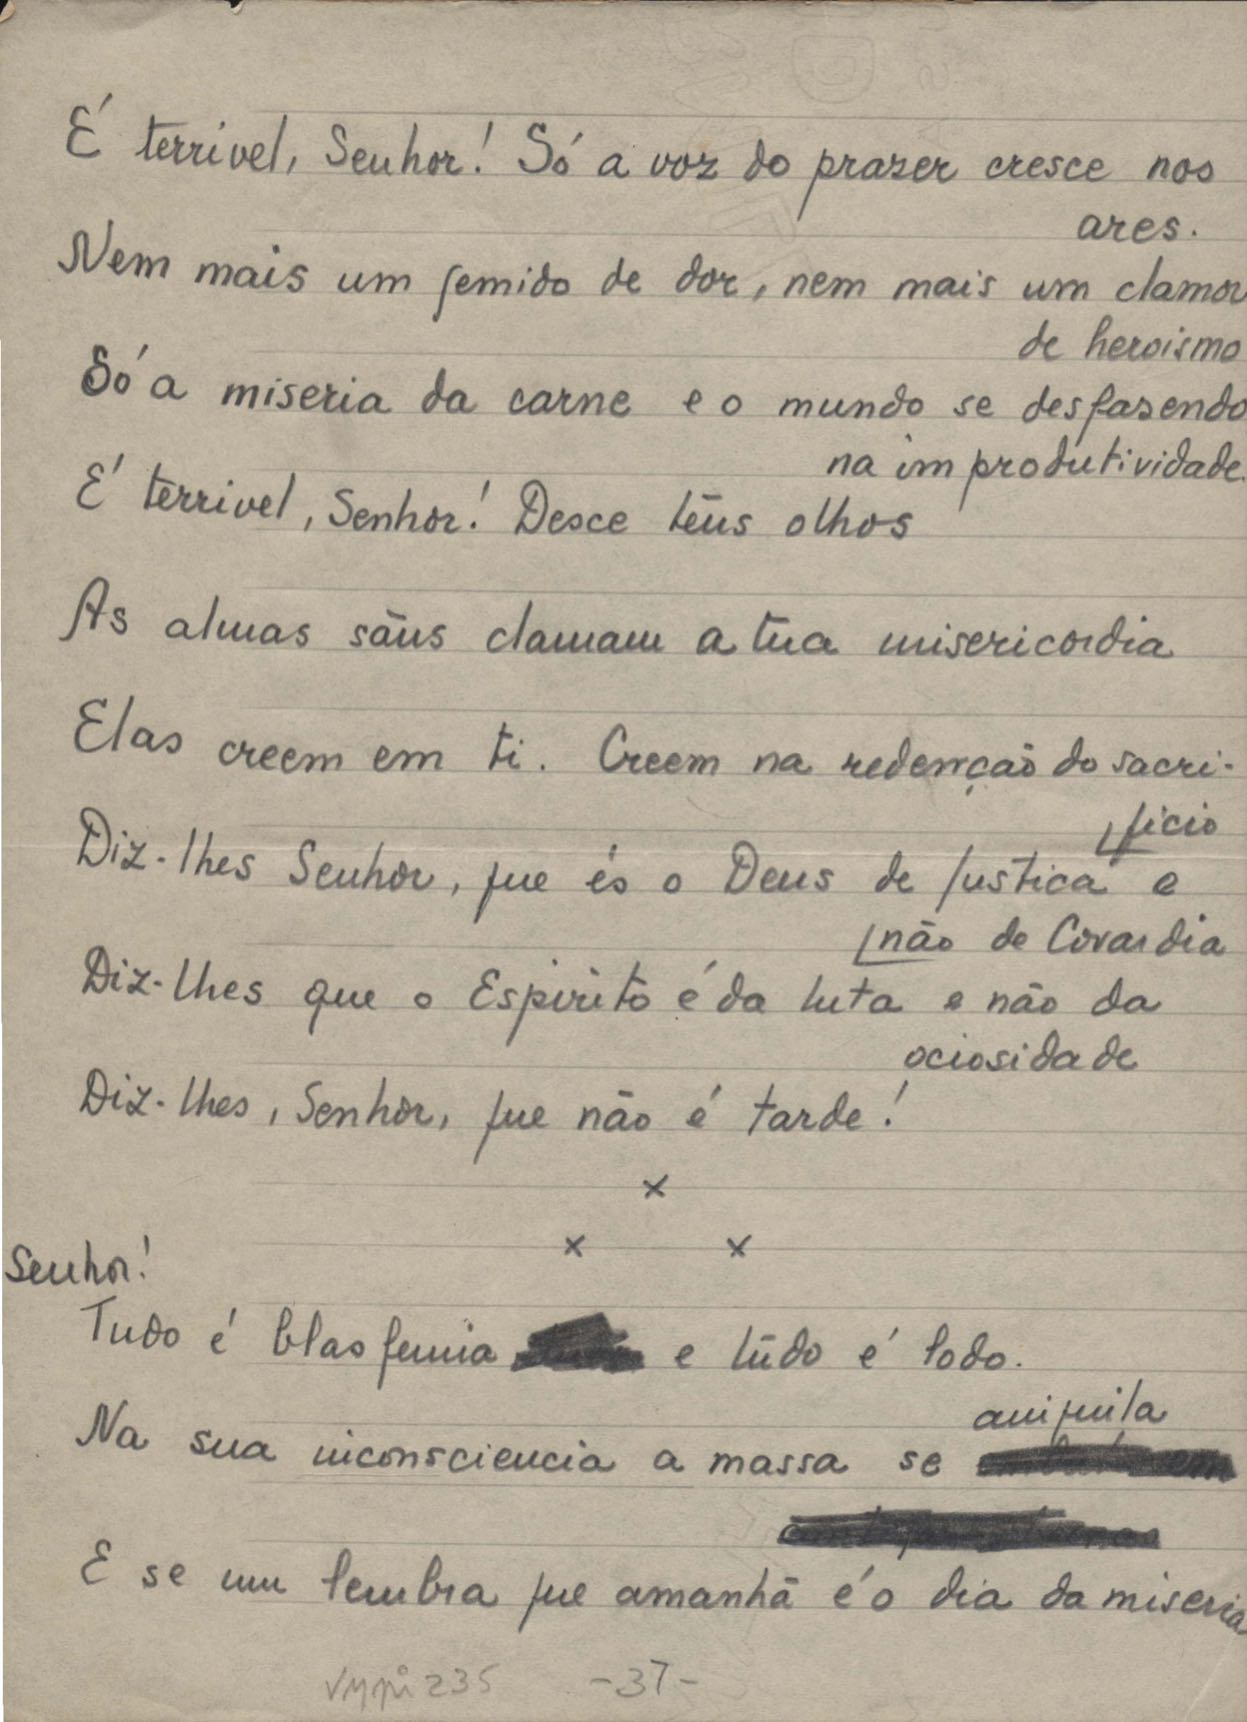 É terrivel, Senhor! Só a voz do prazer cresce nos
ares.
Nem mais um gemido de dor, nem mais um clamor
de heroismo
Só a miseria da carne e o mundo se desfazendo
na improdutividade.
É terrivel, Senhor! Desce teus olhos
As almas sãus clamam a tua misericordia
Elas creem em ti. Creem na redempção do sacri-
ficio
Diz-lhes Senhor, que és o Deus de Justiça e
não de Covardia
Diz-lhes que o Espirito é da luta e não da
ociosidade
Diz-lhes, Senhor, que não é tarde!
x
x x
Senhor!
Tudo é blasfemia e tudo é lodo.
aniquila
Na sua inconsciencia a massa se
E se um lembra que amanhã é o dia da miseria
-37-